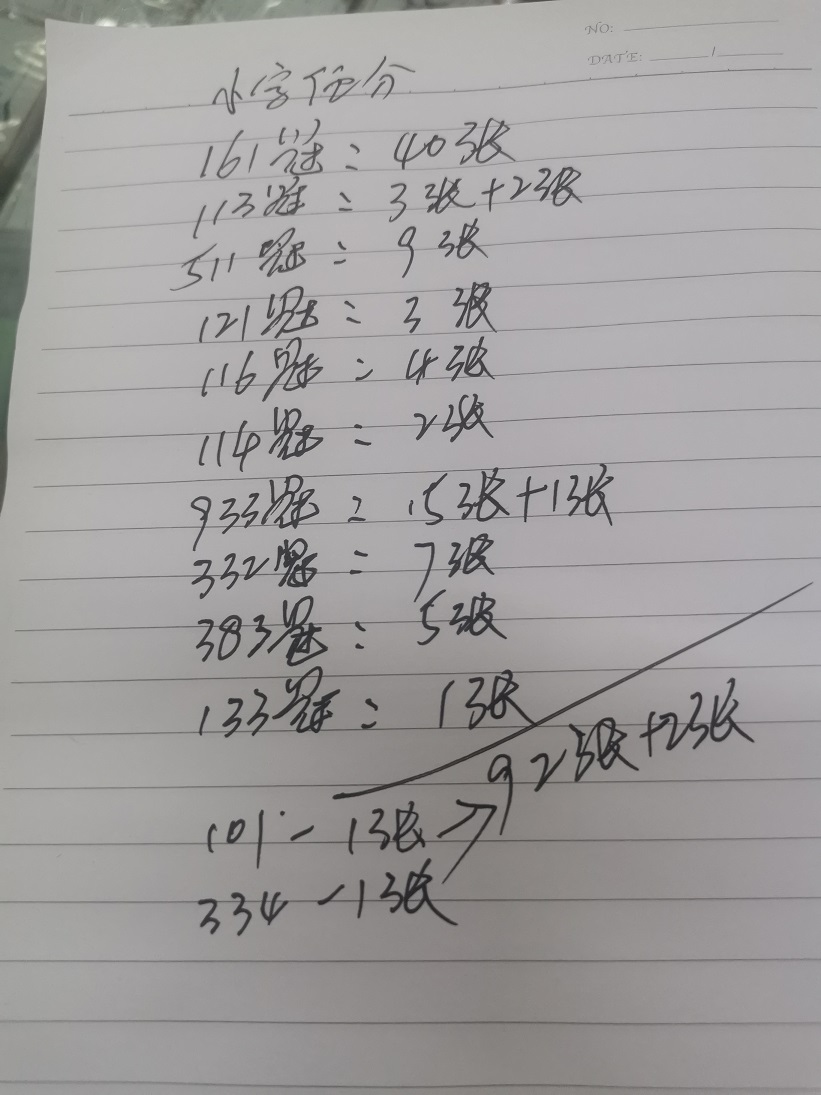 NO:
DATE: /
小字位分
161冠: 40张
113冠: 3张+2张
511冠: 9张
121冠: 3张
116冠: 4张
114冠: 2张
933冠: 15张+1张
332冠: 7张
383冠: 5张
133冠: 1张
92张+2张
101-1张
334-1张